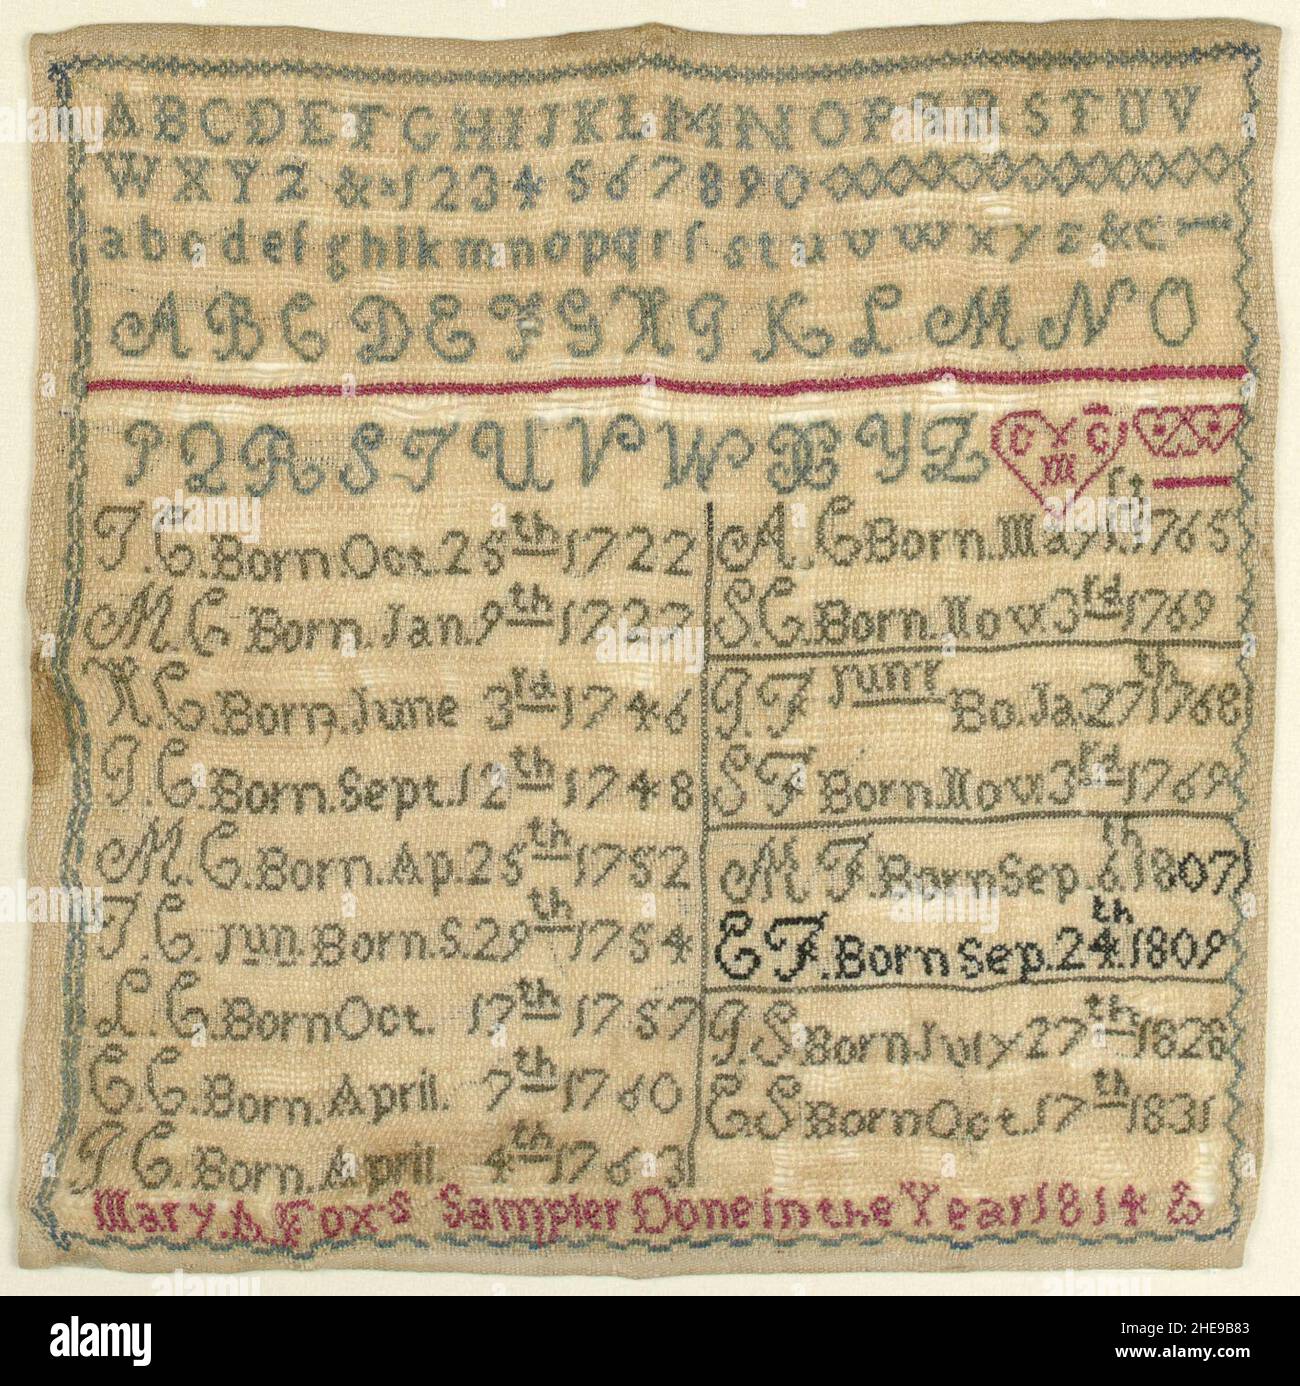 ABCDEFGHIJKLMNOPQRSTUV
WXYZ &1234567890
abcdefghikmnopqrſstuvwxyz&c
ABCDEFGHIKLMNO
PQRSTUVWXYZ
J. C. Born. Oct. 25th 1722
M. C. Born. Jan. 9th 1727
H. C. Born. June 3rd 1746
J. C. Born. Sept. 12th 1748
M. C. Born. Ap. 25th 1752
J. C. Jun. Born. S. 29th 1754
L. C. Born Oct. 17th 1757
C. C. Born. April. 7th 1760
J. C. Born. April. 4th 1763
A. C Born. May 1st 1765
S. C. Born. Nov. 3rd 1769
J. F Junr Bo. Ja. 27th 1768
S F Born. Nov. 3rd 1769
M F. Born Sep. 6th 1807
E F. Born Sep. 24th 1809
J. S Born July 27th 1828
E. S Born Oct 17th 1831
Mary. A. Fox's Sampler Done in the Year 1814 &
alamy
Image ID: 2HE9B83
www.alamy.com